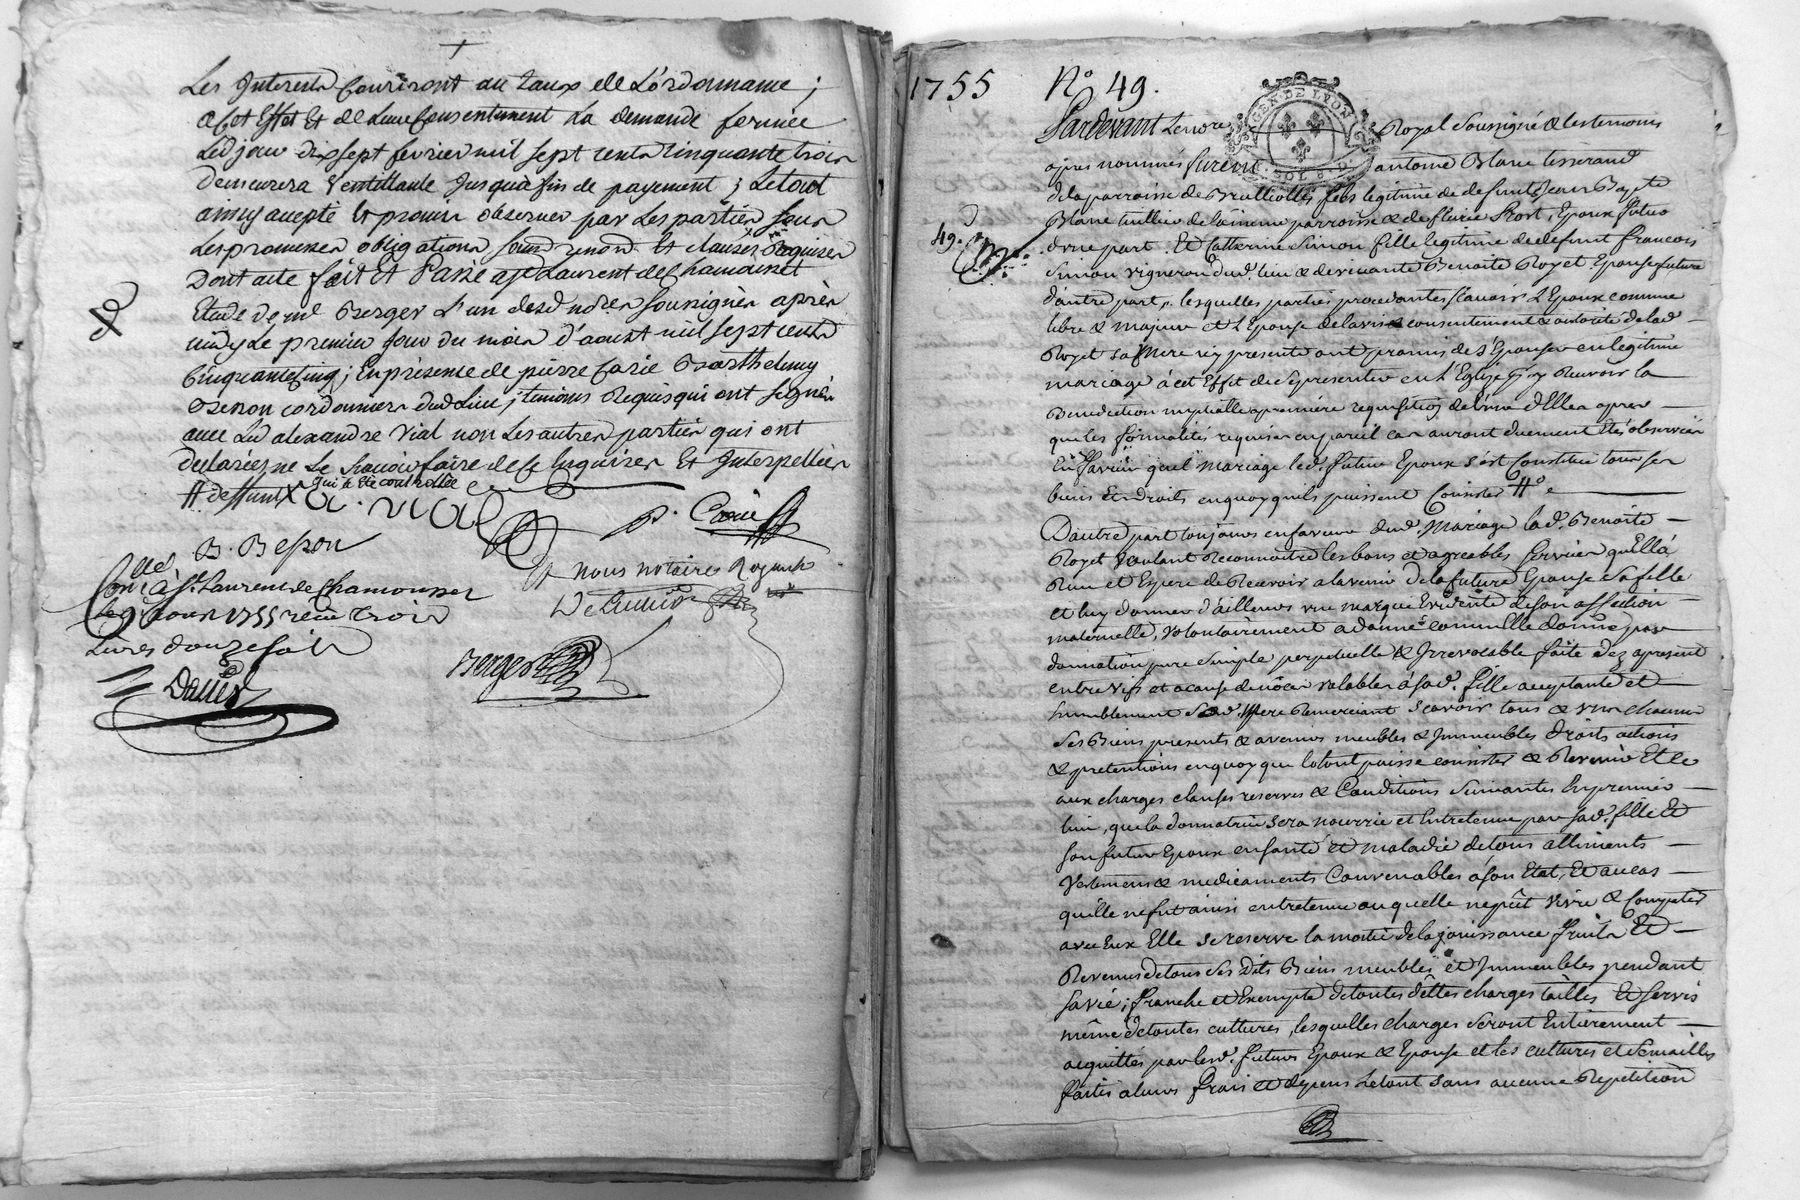 Les Interests Couriront au taux de L'ordonnance ;
a Cet Effet Et de Leur Consentement La demande formée
Led jour dixsept fevrier mil sept cents Cinquante trois
demeurera Jusqu'à fin de payement ; Le tout
ainsy accepté Et promis observer par Les parties sous
Les promesses obligations Et clauses Requises
Dont acte fait Et Passé a St Laurent de Chamousset
Etude de me Berger L'un desd nores soussignés après
midy Le premier Jour du mois d'aoust mil sept cents
Cinquante Cinq ; En présence de pierre Carie Barthelemy
Besson cordonniers dud Lieu, temoins Requis qui ont signés
avec Led alexandre Vial non Les autres parties qui ont
declarées ne Le scavoir faire de ce Enquises Et Interpellées
qui a Eté controllée
a. vial
P. Carie
B. Besson
nous notaires Royaux
Conllé à St Laurent de Chamousset
le aoust 1755 receu trois
Livres douze sols
Berger
1755 No 49.
GEN. DE LYON
Pardevant Le nore Royal Soussigné & les temoins
apres nommés furent antoine Blanc tisserand
de la parroisse de Brullioles fils legitime de defunt Jean Bapte
Blanc tuillier de la meme parroisse & de fleurie Prost, Epoux futur
49.
d'une part. Et Catherine Simon fille legitime de defunt francois
Simon vigneron dud. lieu & de vivante Benoite Royet Epouse future
d'autre part, lesquelles parties procedantes scavoir L'Epoux comme
libre & majeur et L'Epouse de lavis & consentement & autorité de lad.
Royet sa Mere icy presente ont promis de s'Epouser en legitime
mariage à cet Effet de se presenter en L'Eglise p.r y Recevoir la
Benediction nuptialle a premiére requisition de L'une d'Elles apres
que les formalités requises en pareil cas auront duement Etés observées
En faveur quel mariage led. futur Epoux s'est Constitué tous ses
biens Et droits en quoy qu'ils puissent Consister
D'autre part toujours en faveur dud. Mariage lad. Benoite
Royet voulant Reconnoitre les bons et agreables services quElle à
Recu et Espere de Recevoir a lavenir de la future Epouse sa fille
et luy donner d'ailleurs une marque Evidente de son affection
maternelle, volontairement a donné comme Elle donne par
donnation pure simple perpetuelle & Irrevocable faite dez apresent
entre vifs et a cause de nôces valables à sad. fille acceptante et
humblement sad. Mere Remerciant scavoir tous & uns chacuns
ses Biens presents & avenirs meubles & Immeubles droits actions
& pretentions en quoy que le tout puisse consister & Revenir Et ce
aux charges clauses reserves & Conditions suivantes En premier
lieu, que la donnatrice sera nourrie et Entretenue par sad. fille Et
son futur Epoux en santé et maladie de tous alliments
Vestemens & medicaments Convenables à son Etat, Et au cas
qu'elle ne fut ainsi entretenue ou quelle ne pût vivre & Compatir
avec Eux Elle se reserve la moitié de la jouissance fruits Et
Revenus de tous ses dits Biens meubles et Immeubles pendant
sa vie ; franche et Exempte de toutes dettes charges tailles Et servis
même de toutes cultures, lesquelles charges seront Entierement
acquittés par lesd. futurs Epoux & Epouse et les cultures et semailles
faites a leurs frais et depens Le tout sans aucune Repetition